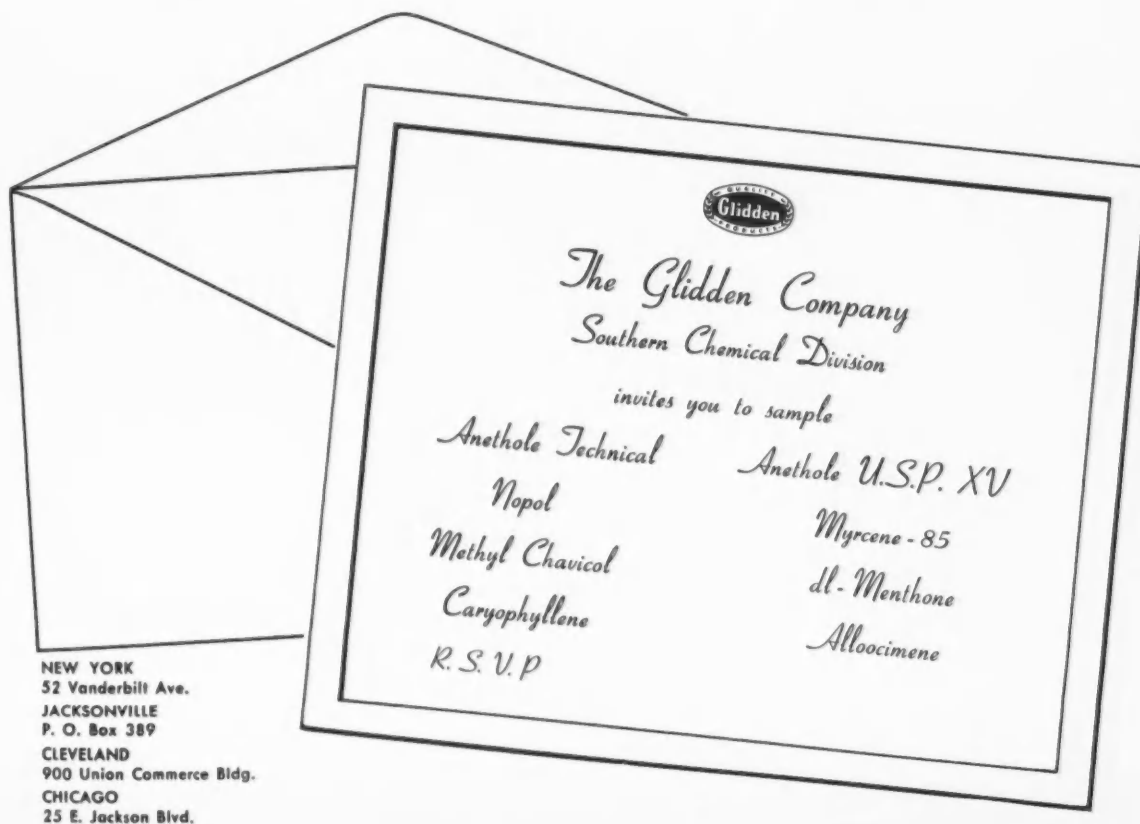 QUALITY
Glidden
PRODUCTS
The Glidden Company
Southern Chemical Division
invites you to sample
Anethole Technical
Nopol
Methyl Chavicol
Caryophyllene
R. S. V. P
Anethole U.S.P. XV
Myrcene - 85
dl - Menthone
Alloocimene
NEW YORK
52 Vanderbilt Ave.
JACKSONVILLE
P. O. Box 389
CLEVELAND
900 Union Commerce Bldg.
CHICAGO
25 E. Jackson Blvd.